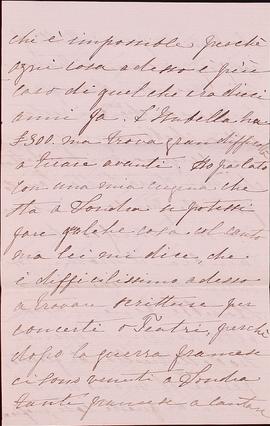 chi è impossibile perchè
ogni cosa adesso è più
caro di quel che era dieci
anni fa. L'Isabella ha
£300. ma trova gran difficoltà
a tirare avanti. Ho parlato
con una mia cugina che
sta a Londra se potessi
fare qualche cosa col canto
ma lei mi dice, che
è difficilissimo adesso
a trovare scritture per
concerti o Teatri, perchè
dopo la guerra francese
ci sono venuti a Londra
tante francese a cantar